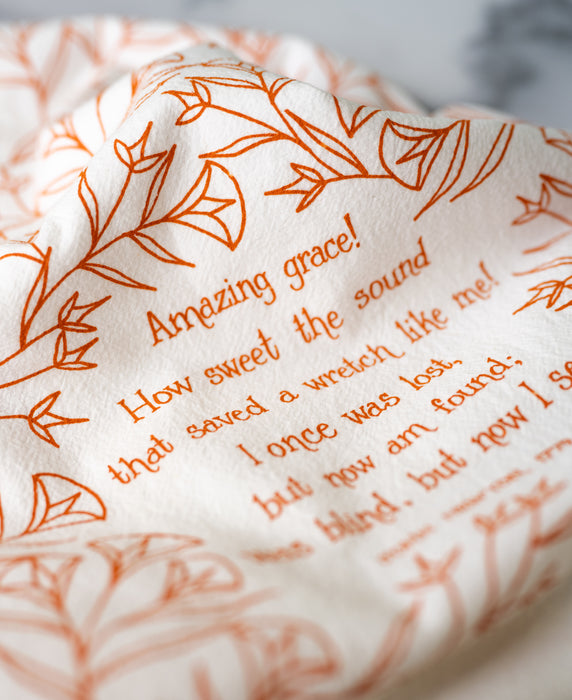 Amazing grace!
How sweet the sound
that saved a wretch like me!
I once was lost,
but now am found;
was blind, but now I se